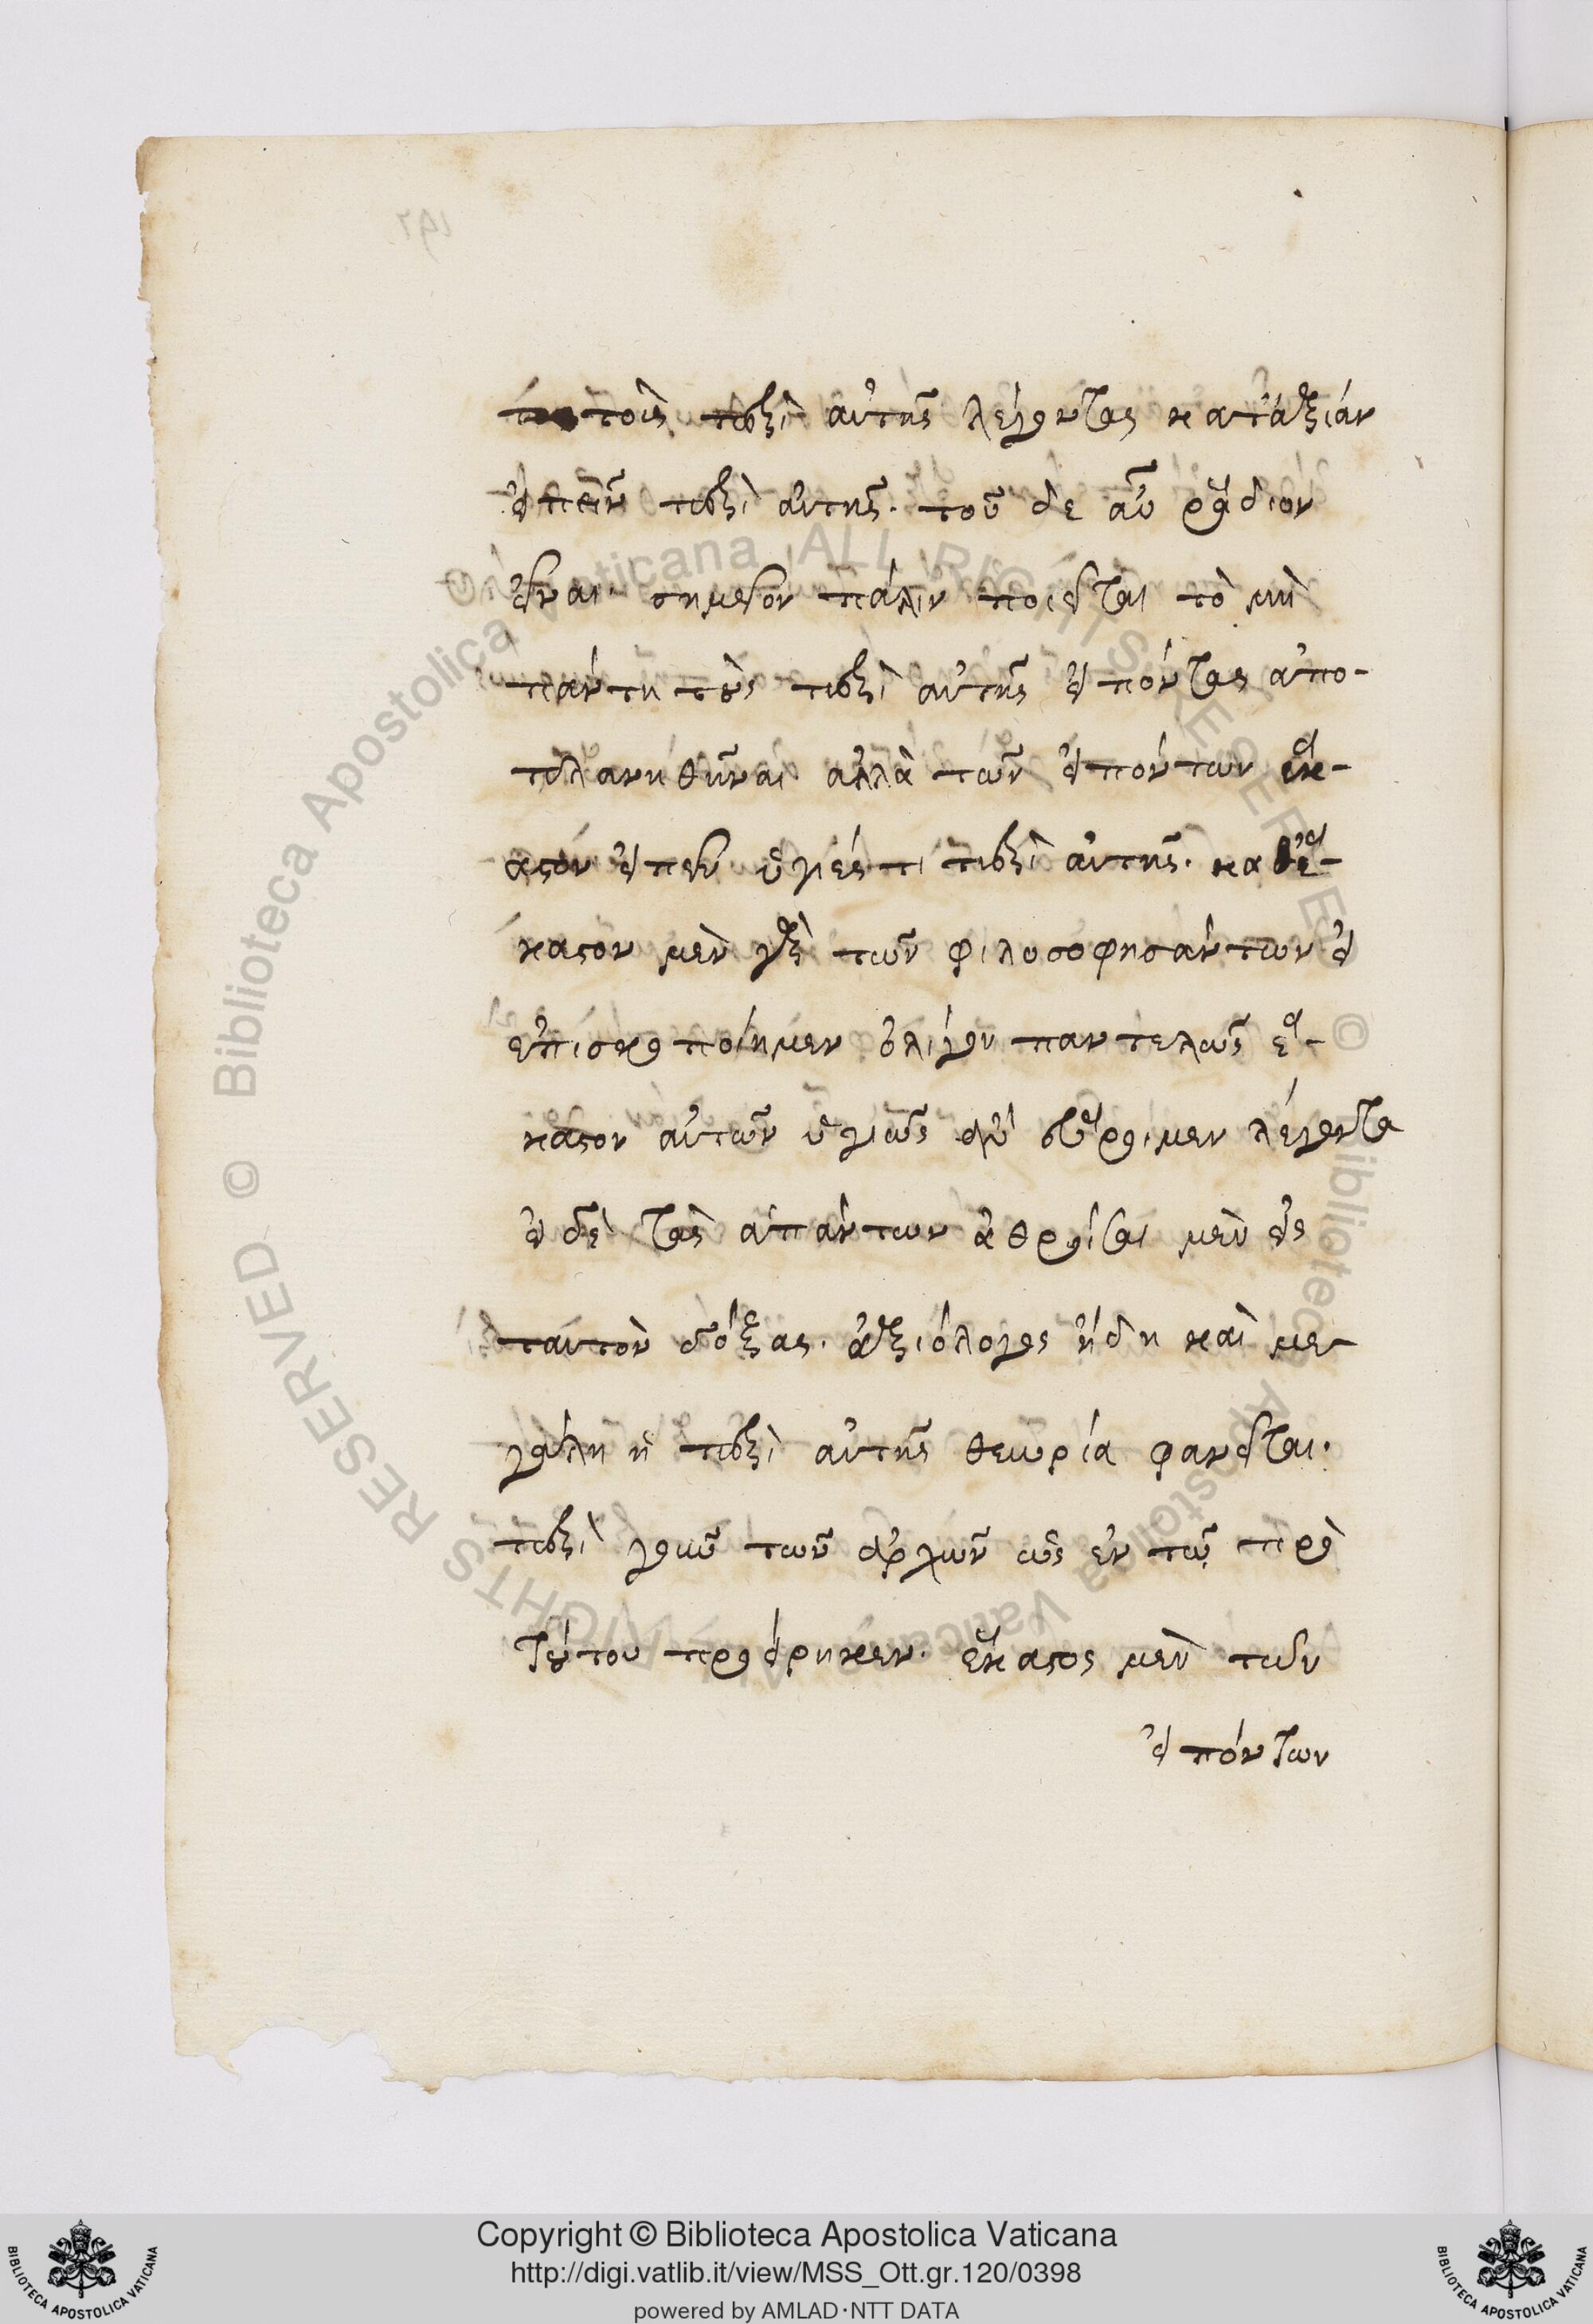 τοὺς περὶ αὐτῆς λέγοντας κατἀξίαν
εἰπεῖν περὶ αὐτῆς. τοῦ δὲ αὖ ῥᾴδιον
εἶναι. σημεῖον πάλιν ποιεῖται τὸ μὴ
πάντη τοὺς περὶ αὐτῆς εἰπόντας ἀπο-
πλανηθῆναι ἀλλὰ τῶν εἰπόντων ἕκ-
αστον εἰπεῖν ὑγιές τι περὶ αὐτῆς. καθέ-
καστον μὲν γὰρ τῶν φιλοσοφησάντων εἰ
ἐπισκοποίημεν ὀλίγον παντελῶς ἕ-
καστον αὐτῶν ὑγιῶς ἂν εὕροιμεν λέγοντα
εἰ δὲ τὰς ἁπάντων ἀθροίσαι μὲν εἰς
ταυτὸν δόξας. ἀξιόλογος ἤδη καὶ με
γάλη ἡ περὶ αὐτῆς θεωρία φανεῖται.
περὶ γοῦν τῶν ἀρχῶν ὡς ἐν τῷ πρὸ
τούτου προείρηκεν. ἕκαστος μὲν τῶν
εἰπόντων
Copyright © Biblioteca Apostolica Vaticana
http://digi.vatlib.it/view/MSS_Ott.gr.120/0398
powered by AMLAD·NTT DATA
BIBLIOTECA APOSTOLICA VATICANA
BIBLIOTECA APOSTOLICA VATICANA